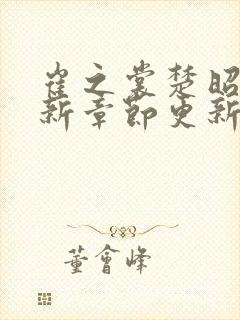 崔之裳楚昭
新章節更新
董會峰